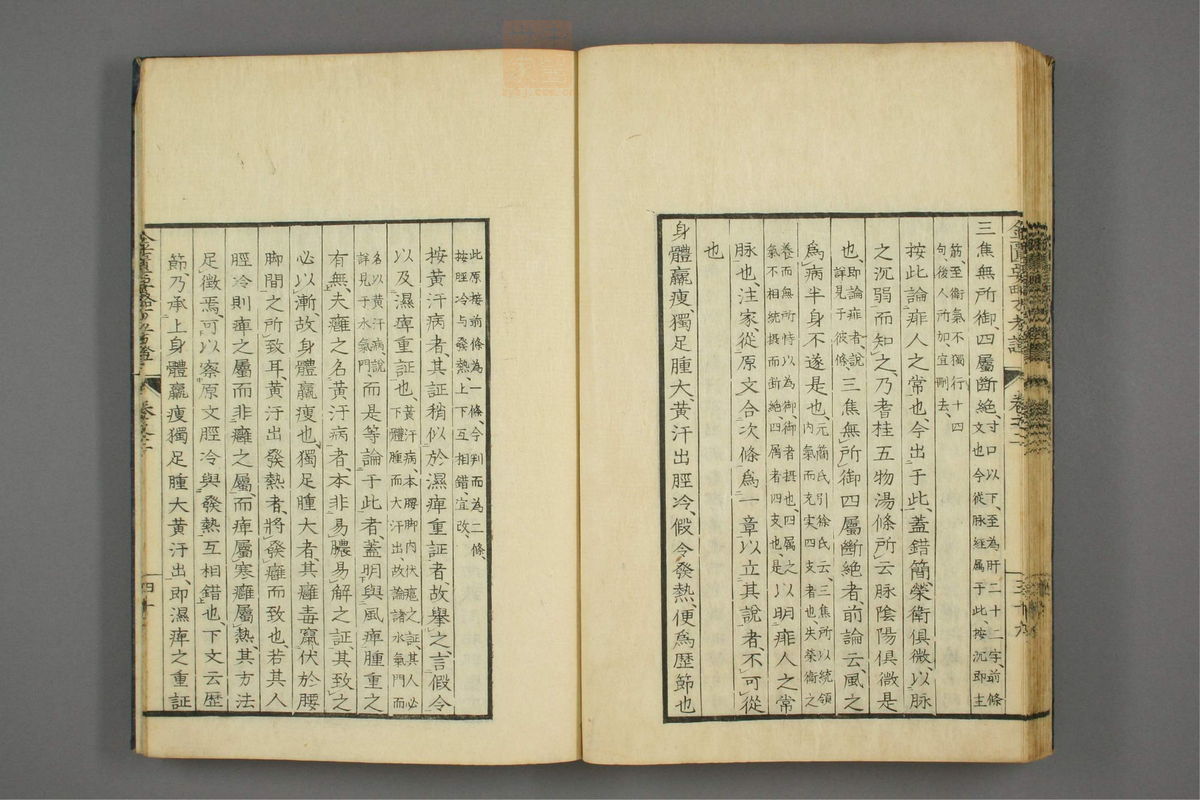 三焦無所御、四屬斷絶、寸口以下、至為肝二十二字、前條
文也今從脉經属于此、按沉即主
筋、至衛氣不獨行十四
句、後人所加、宜刪去、
按此論痱人之常也、今出于此、蓋錯簡、榮衛俱微、以脉
之沉弱而知之、乃耆桂五物湯條所云脉陰陽俱微是
也、即論痱者、說
詳見于彼條、三焦無所御四屬斷絶者前論云、風之
爲病半身不遂是也、元簡氏引徐氏云、三焦所以統領
内氣而充実四支者也、失榮衛之
養而無所恃以為御、御者摂也、四属之以明痱人之常
氣不相統摂而断絶、四属者四支也、是
脉也、注家、從原文合次條爲一章以立其說者、不可從
也
身體羸瘦、獨足腫大、黄汗出脛冷、假令發熱、便爲歷節也
此原接前條為一條、今判而為二條、
按脛冷与發熱、上下互相錯、宜改、
按黄汗病者、其証稍似於濕痺重証者、故舉之、言假令
以及濕痺重証也、黄汗病、本腰脚内伏瘡之証、其人必
下體腫而大汗出、故論諸水氣門而
名以黄汗病、說
詳見于水氣門、而是等論于此者、蓋明與風痺腫重之
有無、夫癰之名黄汗病者、本非易膿易解之証、其致之
必以漸、故身體羸瘦也、獨足腫大者、其癰毒竄伏於腰
脚間之所致耳、黄汗出發熱者、將發癰而致也、若其人
脛冷則痺之屬而非癰之屬、而痺屬寒癰屬熱、其方法
足徴焉、可以察原文脛冷與發熱互相錯也、下文云歷
節、乃承上身體羸瘦獨足腫大黄汗出、即濕痺之重証